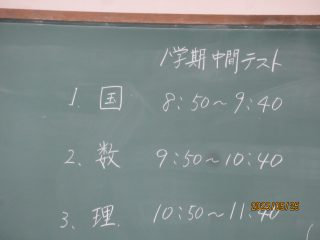 1学期中間テスト
1. 国 8:50~9:40
2. 数 9:50~10:40
3. 理 10:50~11:40